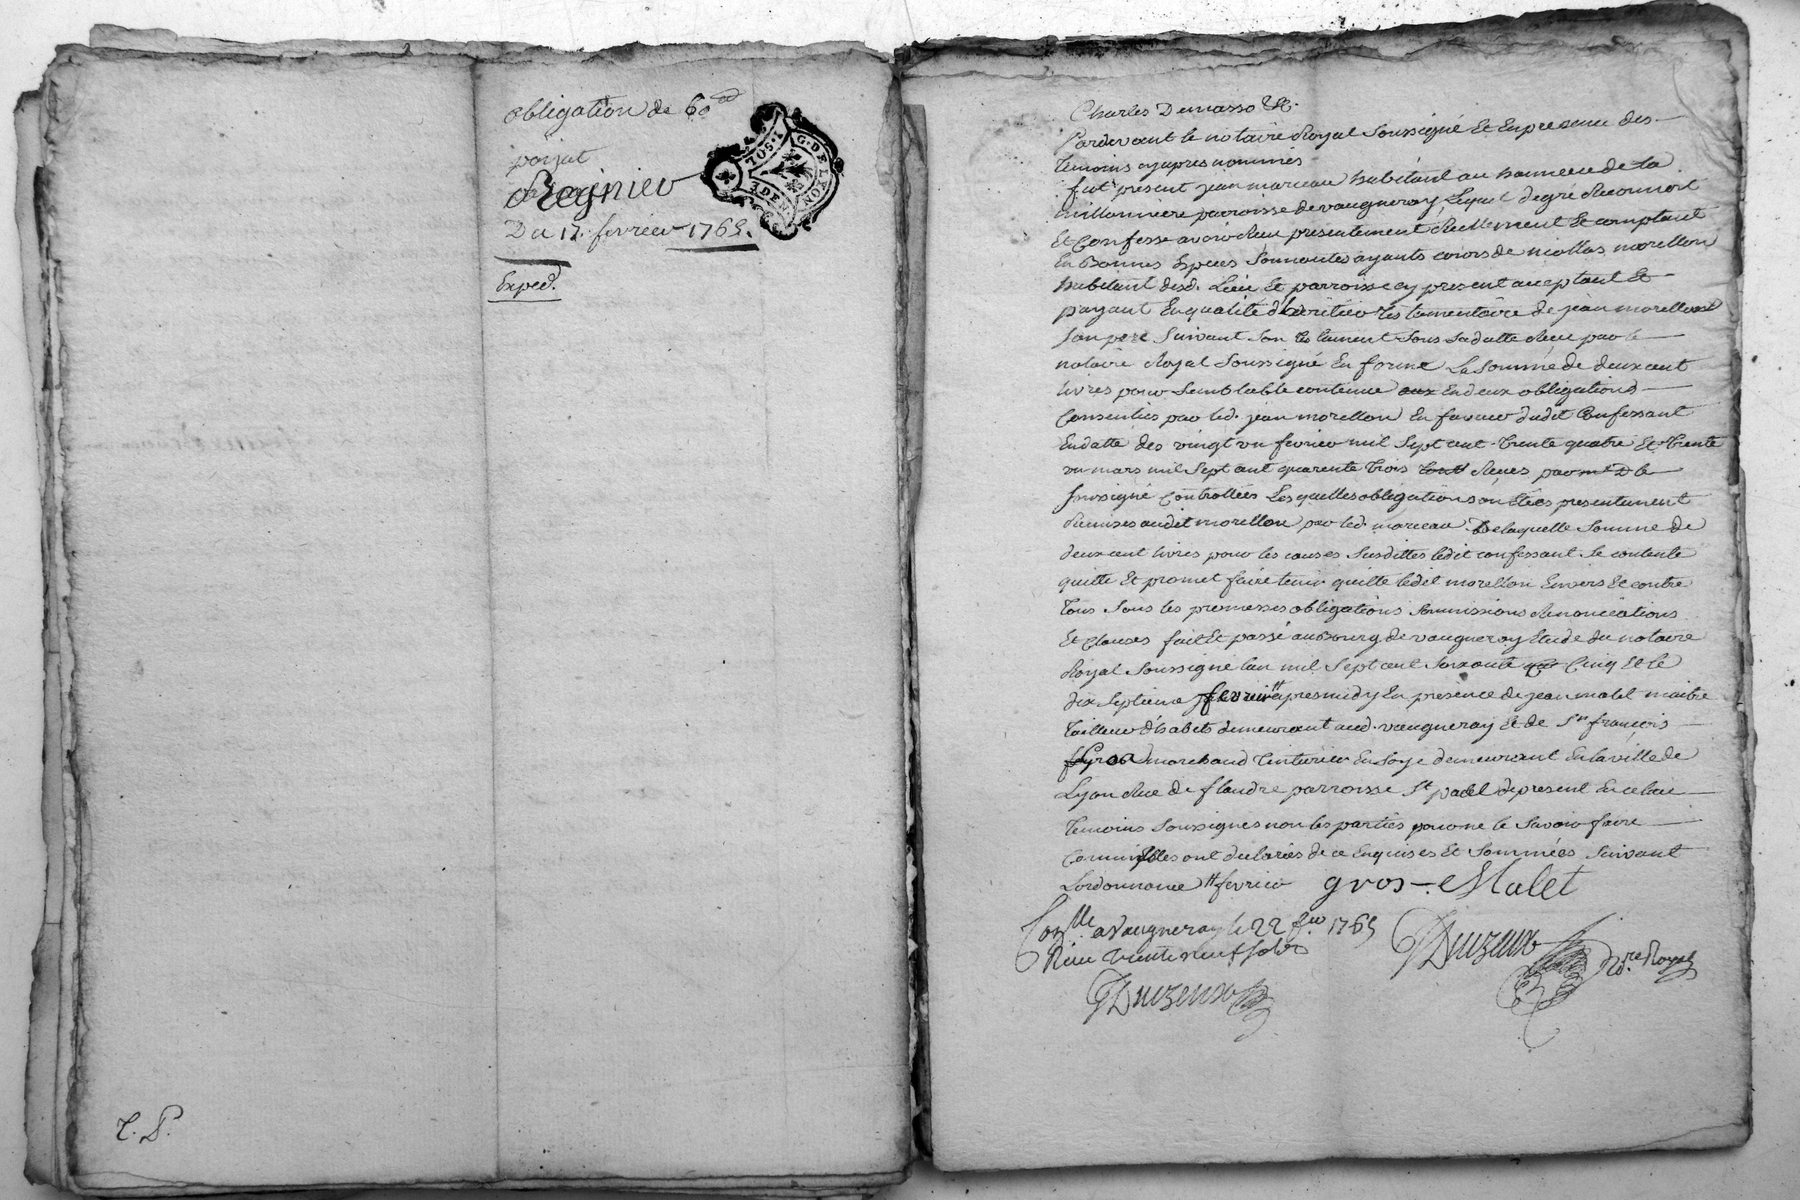 obligation de 60
parjat
Regnier
Du 17. fevrier 1765.
Exped.
G. DE LYON
1. SOL
T. P.
Charles Demasso &c.
Pardevant le notaire Royal Soussigné Et En presence des
temoins cy apres nommés
fut present jean marceau habitant au hameau de La
millonniere parroisse de vaugneray, Lequel de gré Reconnoit
Et Confesse avoir Reçu presentement Reellement Et comptant
En Bonnes Especes Sonnantes ayants cours de nicollas morellon
habitant desd. Lieu Et parroisse cy present acceptant Et
payant En qualité d'heritier testamentaire de jean morellon
Son pere Suivant Son testament Sous Sa datte Reçu par le
notaire Royal Soussigné En forme La Somme de deux cent
livres pour Semblable contenue En deux obligations
Consenties par led. jean morellon En faveur dudit Confessant
En datte des vingt un fevrier mil Sept cent trente quatre Et trente
un mars mil Sept cent quarente trois Reçues par le
Soussigné Controllées Lesquelles obligations on Etées presentement
Remises audit morellon par led. marceau De laquelle Somme de
deux cent livres pour les causes Susdittes ledit confessant Se contente
quitte Et promet faire tenir quitte ledit morellon Envers Et contre
tous Sous les promesses obligations Soumissions Renonciations
Et Clauses fait Et passé au Bourg de vaugneray Etude du notaire
Royal Soussigné lan mil Sept cent Soixante Cinq Et le
dix Septieme fevrier apres midy En presence de jean malet maitre
tailleur d'habits demeurant aud. vaugneray Et de Sr françois
gros marchand teinturier En Soye demeurant En la ville de
Lyon Rue de flandre parroisse St paul de present En ce lieu
temoins Soussignes non les parties pour ne le Savoir faire
Comm'Elles ont declarées de ce Enquises Et Sommées Suivant
Lordonnance fevrier gros Malet
Conlle a Vaugneray le 22 fer 1765
Reçu vente neuf Sols
Duzeux Nre Royal
Duzeux